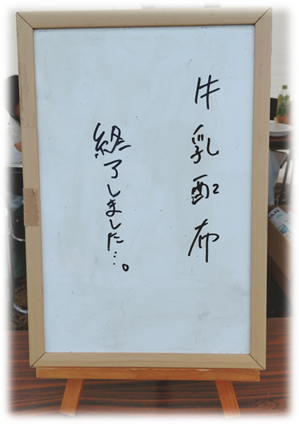 牛乳配布
終了しました…。